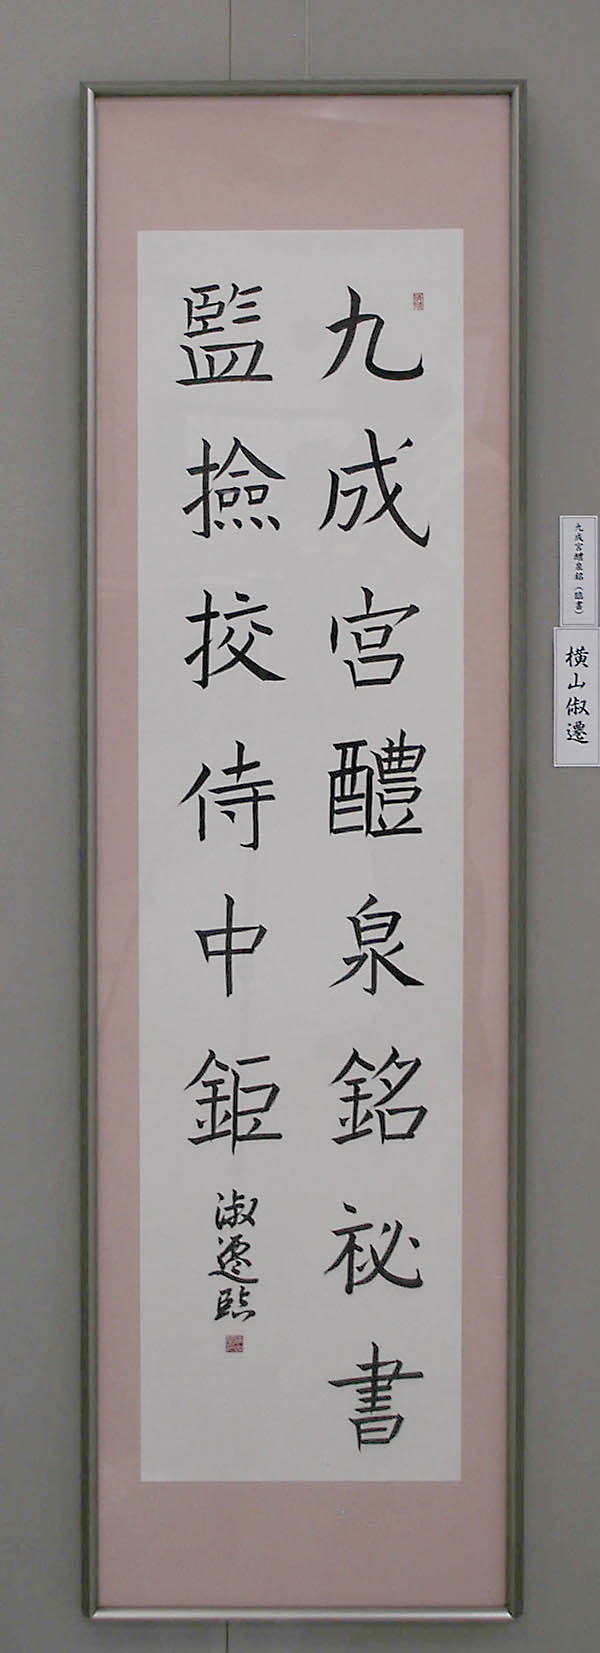 九成宮醴泉銘祕書
監撿挍侍中鉅
淑遷臨
九成宮醴泉銘（臨書）
横山俶遷